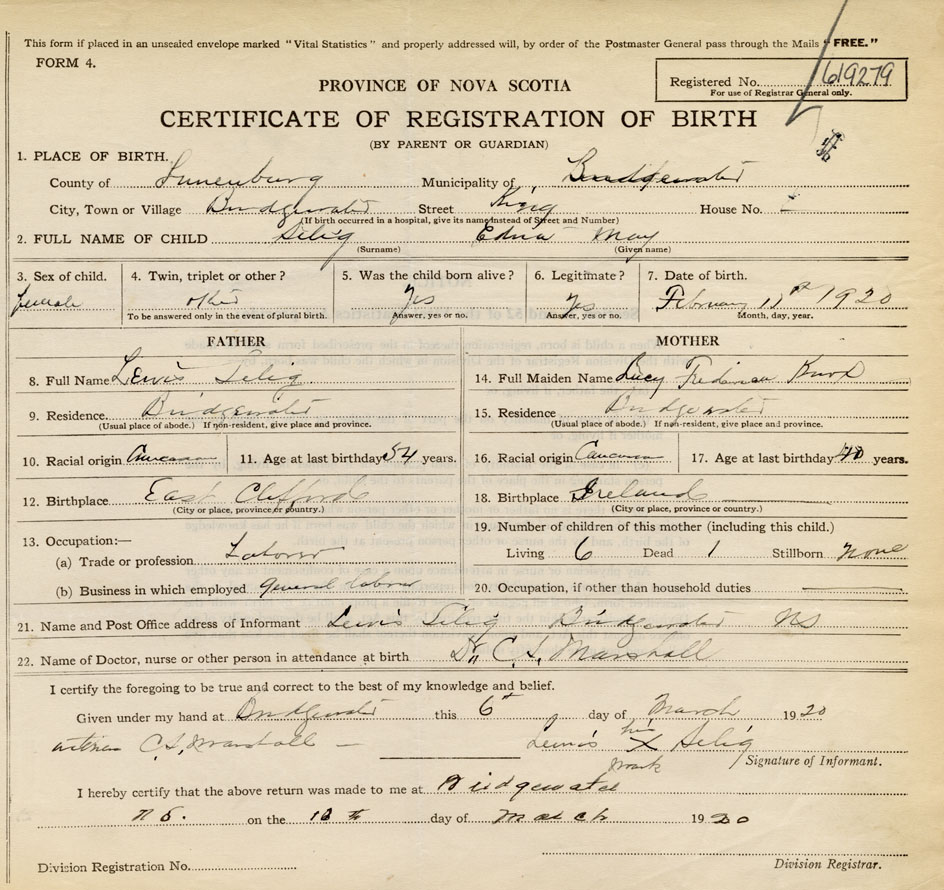 This form if placed in an unsealed envelope marked "Vital Statistics" and properly addressed will, by order of the Postmaster General pass through the Mails "FREE."
FORM 4.
PROVINCE OF NOVA SCOTIA
Registered No. 619279
For use of Registrar General only.
CERTIFICATE OF REGISTRATION OF BIRTH
(BY PARENT OR GUARDIAN)
1. PLACE OF BIRTH.
County of Lunenburg Municipality of Bridgewater
City, Town or Village Bridgewater Street King House No.
(If birth occurred in a hospital, give its name instead of Street and Number)
2. FULL NAME OF CHILD Selig Edna May
(Surname) (Given name)
3. Sex of child. 4. Twin, triplet or other? 5. Was the child born alive? 6. Legitimate? 7. Date of birth.
female other Yes Yes February 11th 1920
To be answered only in the event of plural birth. Answer, yes or no. Answer, yes or no. Month, day, year.
FATHER MOTHER
8. Full Name Lewis Selig 14. Full Maiden Name Lucy
9. Residence. Bridgewater 15. Residence Bridgewater
(Usual place of abode.) If non-resident, give place and province. (Usual place of abode.) If non-resident, give place and province.
10. Racial origin Caucasian 11. Age at last birthday 54 years. 16. Racial origin Caucasian 17. Age at last birthday 40 years.
12. Birthplace East Clifford 18. Birthplace Ireland
(City or place, province or country.) (City or place, province or country.)
13. Occupation:— 19. Number of children of this mother (including this child.)
(a) Trade or profession Laborer Living 6 Dead 1 Stillborn none
(b) Business in which employed general labour 20. Occupation, if other than household duties
21. Name and Post Office address of Informant Lewis Selig Bridgewater NS
22. Name of Doctor, nurse or other person in attendance at birth Dr. C.S. Marshall
I certify the foregoing to be true and correct to the best of my knowledge and belief.
Given under my hand at Bridgewater this 6th day of March 1920
witness C.S. Marshall — Lewis his X Selig
mark Signature of Informant.
I hereby certify that the above return was made to me at Bridgewater
N S. on the 18th day of March 1920
Division Registration No. Division Registrar.